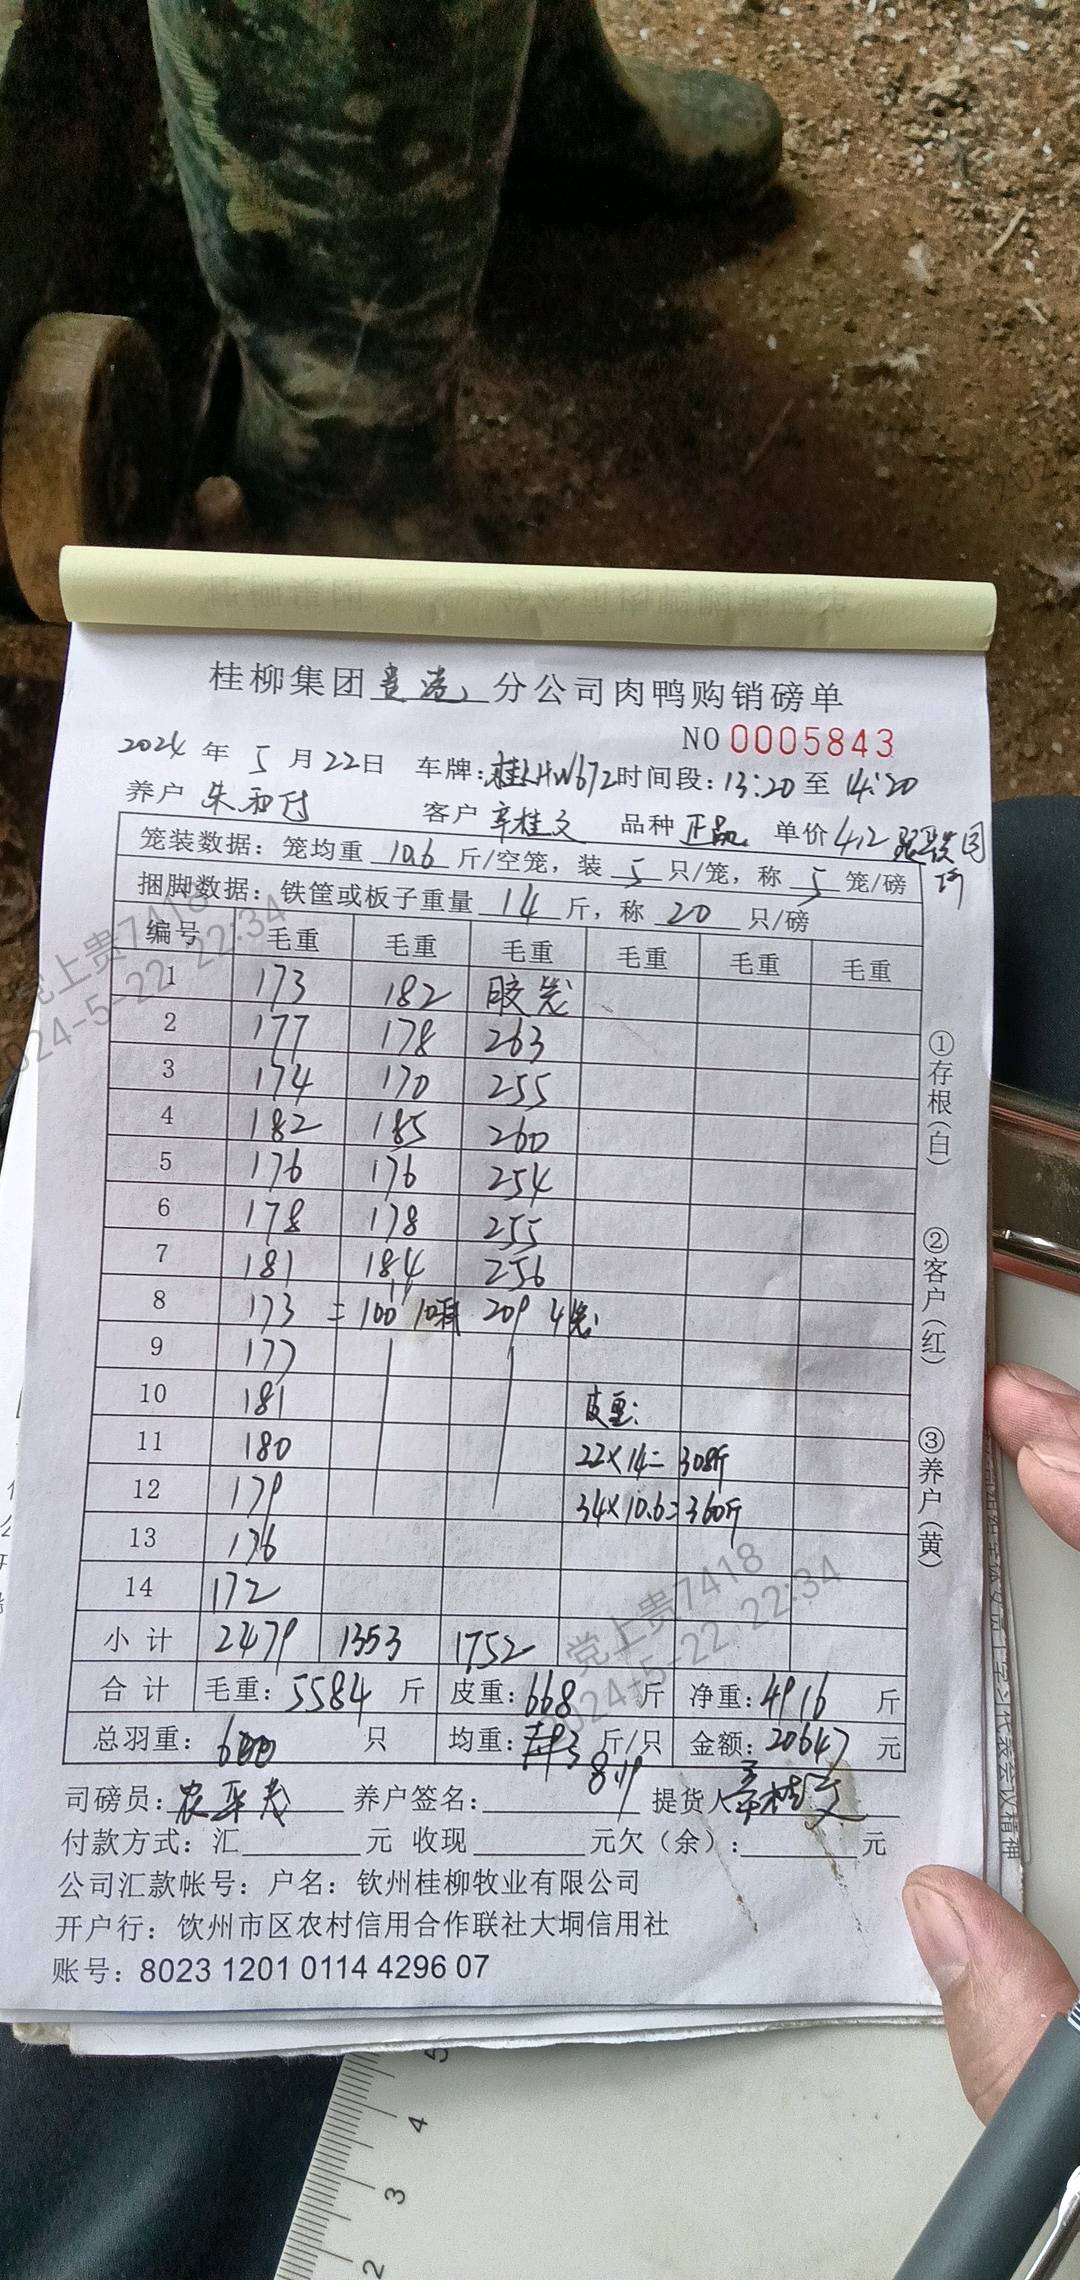 桂柳集团 分公司肉鸭购销磅单
NO 0005843
2024 年 5 月 22 日 车牌: 桂LHW672 时间段: 13:20 至 14:20
养户 朱 客户 辛桂文 品种 正品 单价 4.2
笼装数据: 笼均重 10.6 斤/空笼, 装 5 只/笼, 称 5 笼/磅
捆脚数据: 铁筐或板子重量 14 斤, 称 20 只/磅
编号 毛重 毛重 毛重 毛重 毛重 毛重
1 173 182 胶笼
2 177 178 263
3 174 170 255
4 182 185 260
5 176 176 254
6 178 178 255
7 181 184 256
8 173 =100 10 209 4笼
9 177
10 181 皮重:
11 180 22×14=308斤
12 179 34×10.6=360斤
13 176
14 172
小计 2479 1353 1752
合计 毛重: 5584 斤 皮重: 668 斤 净重: 4916 斤
总羽重: 只 均重: 斤/只 金额: 20647 元
司磅员: 养户签名: 提货人 辛桂文
付款方式: 汇 元 收现 元欠(余): 元
公司汇款帐号: 户名: 钦州桂柳牧业有限公司
开户行: 饮州市区农村信用合作联社大垌信用社
账号: 8023 1201 0114 4296 07
①存根(白)
②客户(红)
③养户(黄)
党上贵7418
2024-5-22 22:34
党上贵7418
2024-5-22 22:34
5
4
3
2